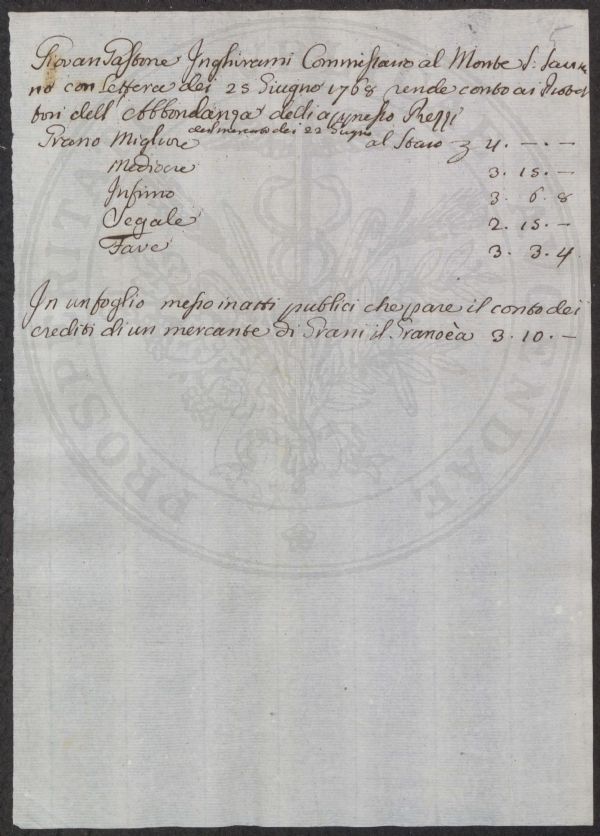 5
Giovan Gastone Inghirami Commissario al Monte S: Savi
no con Lettera dei 23 Giugno 1768 rende conto ai Provedi
tori dell' Abbondanza dedi appresso Prezzi
Grano Migliore del mercato dei 22 Giugno al Staio 4. — . —
Mediocre 3. 15. —
Infimo 3. 6. 8
Segale 2. 15. —
Fave 3. 3. 4
In un foglio messo in atti publici che pare il conto dei
crediti di un mercante di Grani il Grano è a 3. 10. —
PROSPERITA